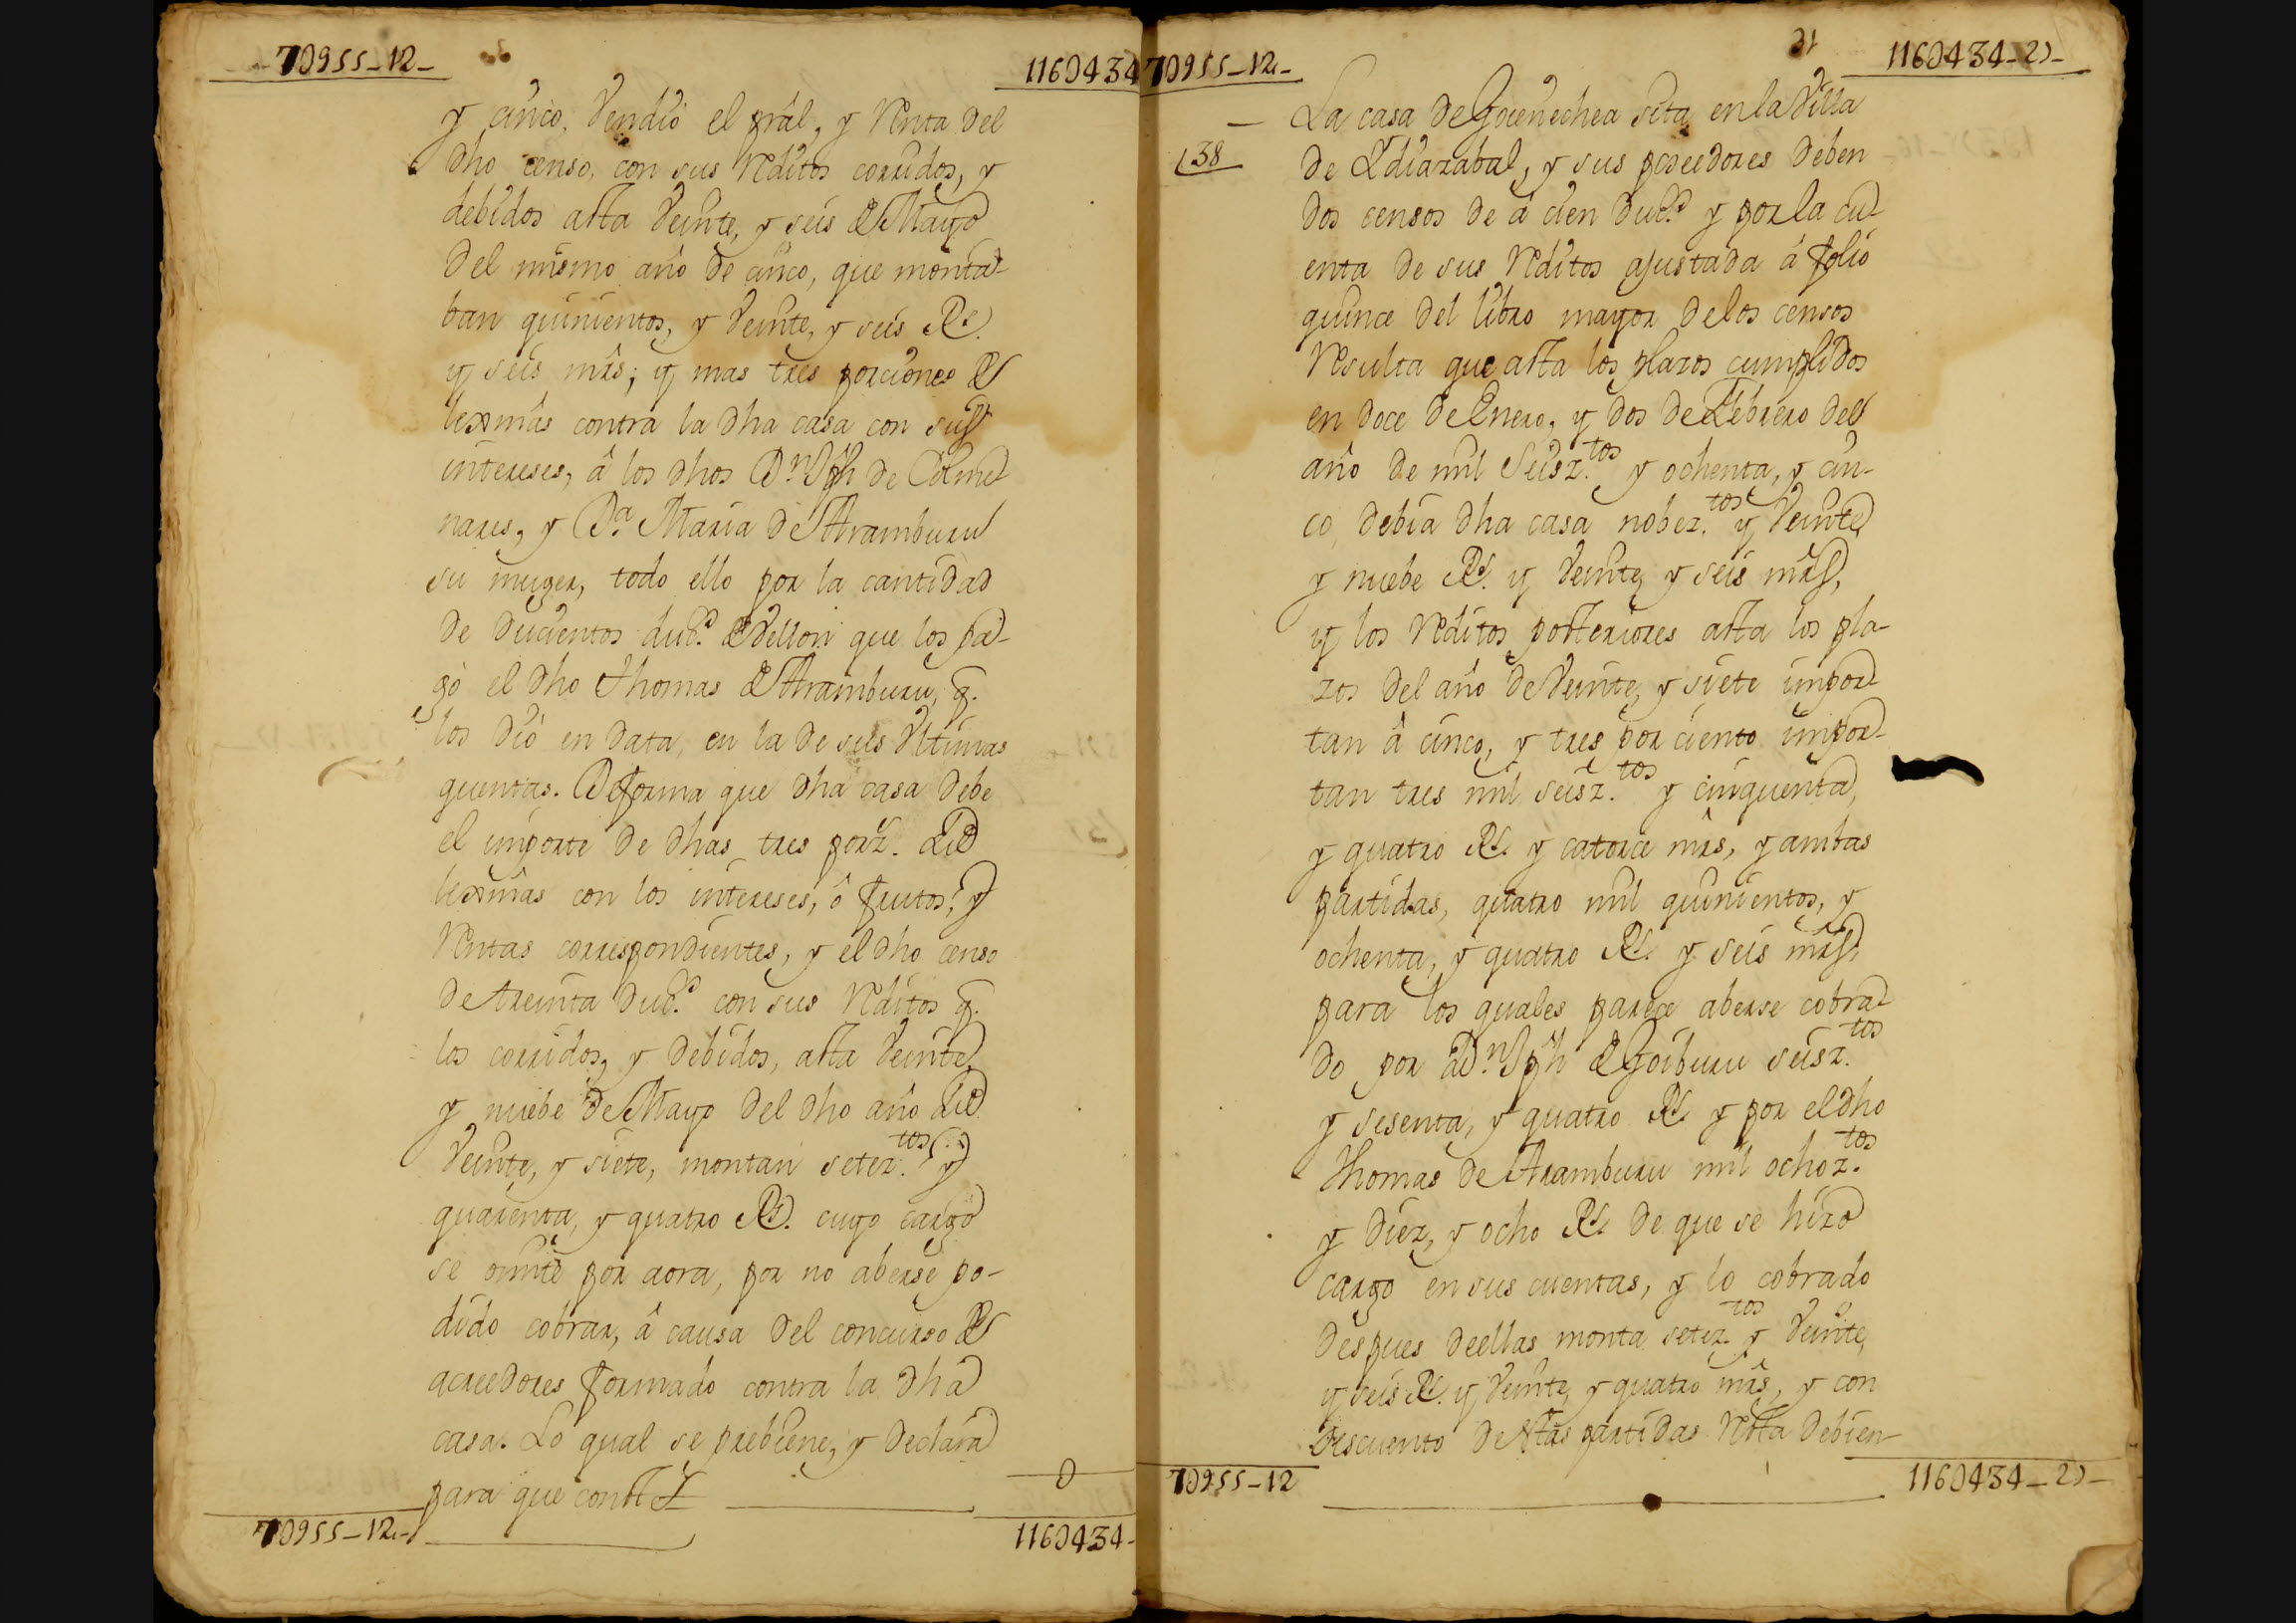 7U955-12-
116U434
y cinco, Vendió el prâl, y Renta del
dho censo, con sus Reditos corridos, y
debidos asta Veinte, y seis de Mayo
del mismo año de cinco, que monta-
ban quinientos, y Veinte, y seis Rs.
y seis mrs; y mas tres porciones de
lexmâs contra la dha casa con sus
intereses, â los dhos Dn. Jph de Colme-
nares, y Da. Maria de Aramburu
su muger, todo ello por la cantidad
de Ducientos duc.s de Vellon que los pa-
gó el dho Thomas de Aramburu, q.
los dió en data, en la de sus Vltimas
quentas. De forma que dha casa debe
el importe de dhas tres porz.s de
lexmâs con los intereses, ô frutos, y
Rentas correspondientes, y el dho censo
de treinta Duc.s con sus Reditos q.
los corridos, y debidos, asta Veinte,
y nuebe de Mayo del dho año de
Veinte, y siete, montan setez.tos y
quarenta, y quatro Rs. cuyo cargo
se omite por aora, por no aberse po-
dido cobrar, â causa del concurso de
acreedores formado contra la dha
casa. Lo qual se prebiene, y declara
para que conste
0
7U955-12-
116U434-
7U955-12-
31
116U434-2)-
La casa de Goenechea sita en la Villa
(38
de Ydiazabal, y sus poseedores deben
dos censos de â cien Duc.s y por la cu-
enta de sus Reditos ajustada â folio
quince del libro mayor de los censos
Resulta que asta los plazos cumplidos
en doce de Enero, y dos de Febrero del
año de mil Seisz.tos y ochenta, y cin-
co, debia dha casa nobez.tos y Veinte,
y nuebe Rs. y Veinte, y seis mrs,
y los Reditos posteriores asta los pla-
zos del año de Veinte, y siete impor-
tan â cinco, y tres por ciento impor-
tan tres mil seisz.tos y cinquenta,
y quatro Rs. y catorce mrs, y ambas
partidas, quatro mil quinientos, y
ochenta, y quatro Rs. y seis mrs,
para los quales parece aberse cobra-
do por Dn. Jph de Goiburu seisz.tos
y sesenta, y quatro Rs. y por el dho
Thomas de Aramburu mil ochoz.tos
y diez, y ocho Rs. de que se hizo
cargo en sus cuentas, y lo cobrado
despues de ellas monta setez.tos y Veinte,
y seis Rs. y Veinte, y quatro mrs, y con
descuento de estas partidas Resta debien-
7U955-12
116U434-2)-